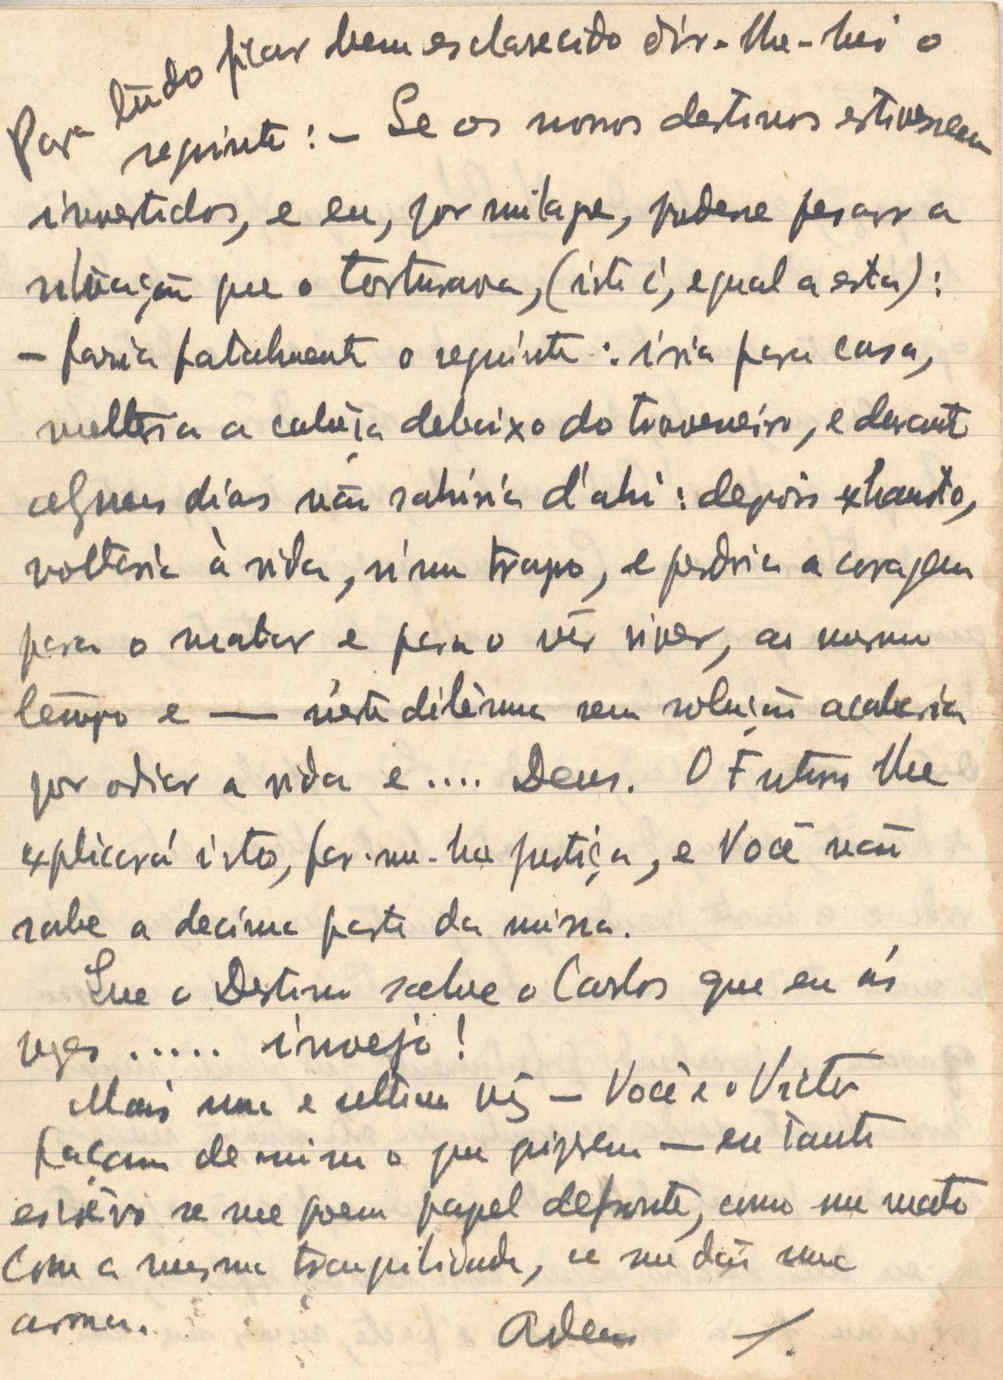 Para tudo ficar bem esclarecido dir-lhe-hei o
seguinte: – Se os nossos destinos estivessem
invertidos, e eu, por milagre, pudesse pesar a
situação que o torturava, (isto é, egual a esta):
– faria fatalmente o seguinte: iria para casa,
metteria a cabeça debaixo do travesseiro, e durante
alguns dias não sahiria d'ahi: depois exhausto,
voltaria à vida, n'um trapo, e perdria a coragem
para o matar e para o vêr viver, ao mesmo
tempo e — n'este dilêma sem solução acabaria
por odiar a vida e .... Deus. O Futuro lhe
explicará isto, far-me-ha justiça, e Você não
sabe a decima parte da missa.
Que o Destino salve o Carlos que eu ás
vezes ..... invejo!
Mais uma e ultima vêz – Você e o Victor
façam de mim o que quizerem — eu tanto
escrêvo se me poem papel defronte, como me mato
com a mesma tranquilidade, se me dão uma
arma. Adeus